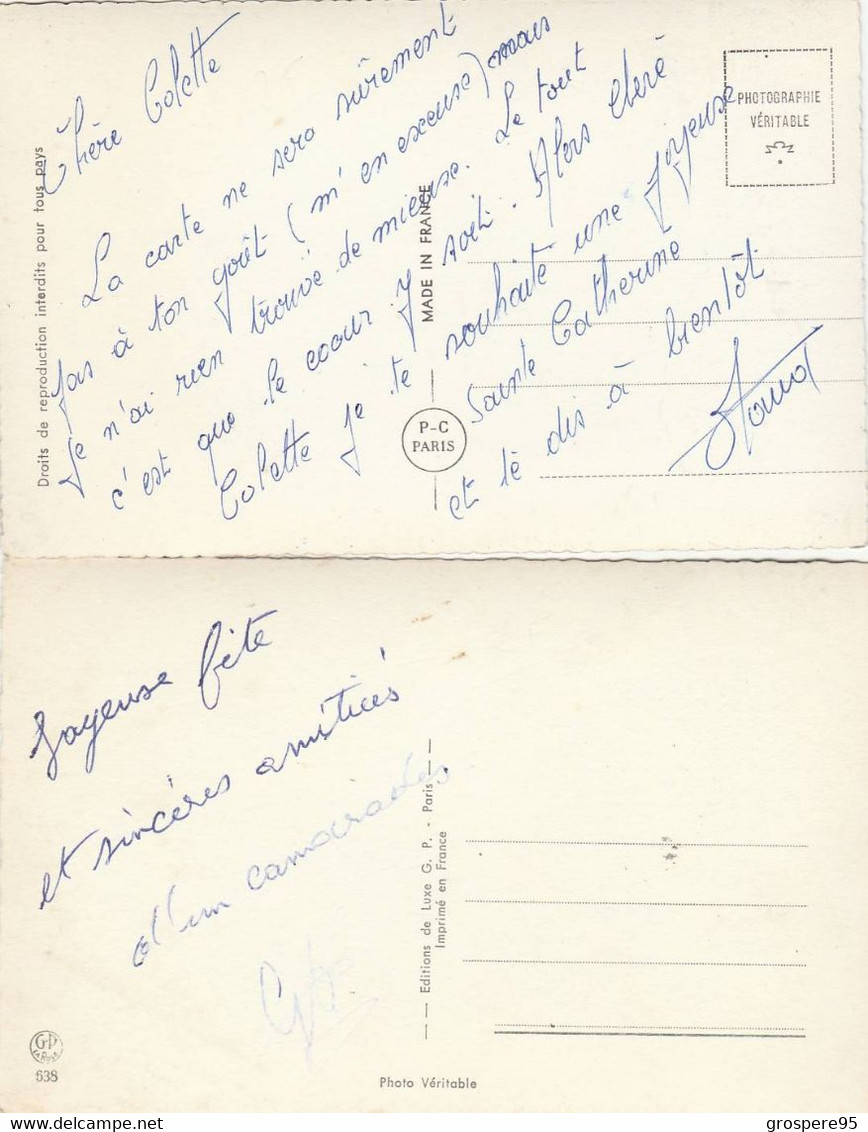 Chère Colette
La carte ne sera sûrement
pas à ton goût (m'en excuse) mais
je n'ai rien trouvé de mieux. Le tout
c'est que le coeur y soit. Alors chère
Colette je te souhaite une Joyeuse
Sainte Catherine
et te dis à bientôt
PHOTOGRAPHIE
VÉRITABLE
Droits de reproduction interdits pour tous pays
MADE IN FRANCE
P-C
PARIS
Joyeuse fête
et sincères amitiés
d'un camarade
Editions de Luxe G. P. - Paris
Imprimé en France
G.P
638
Photo Véritable
grospere95